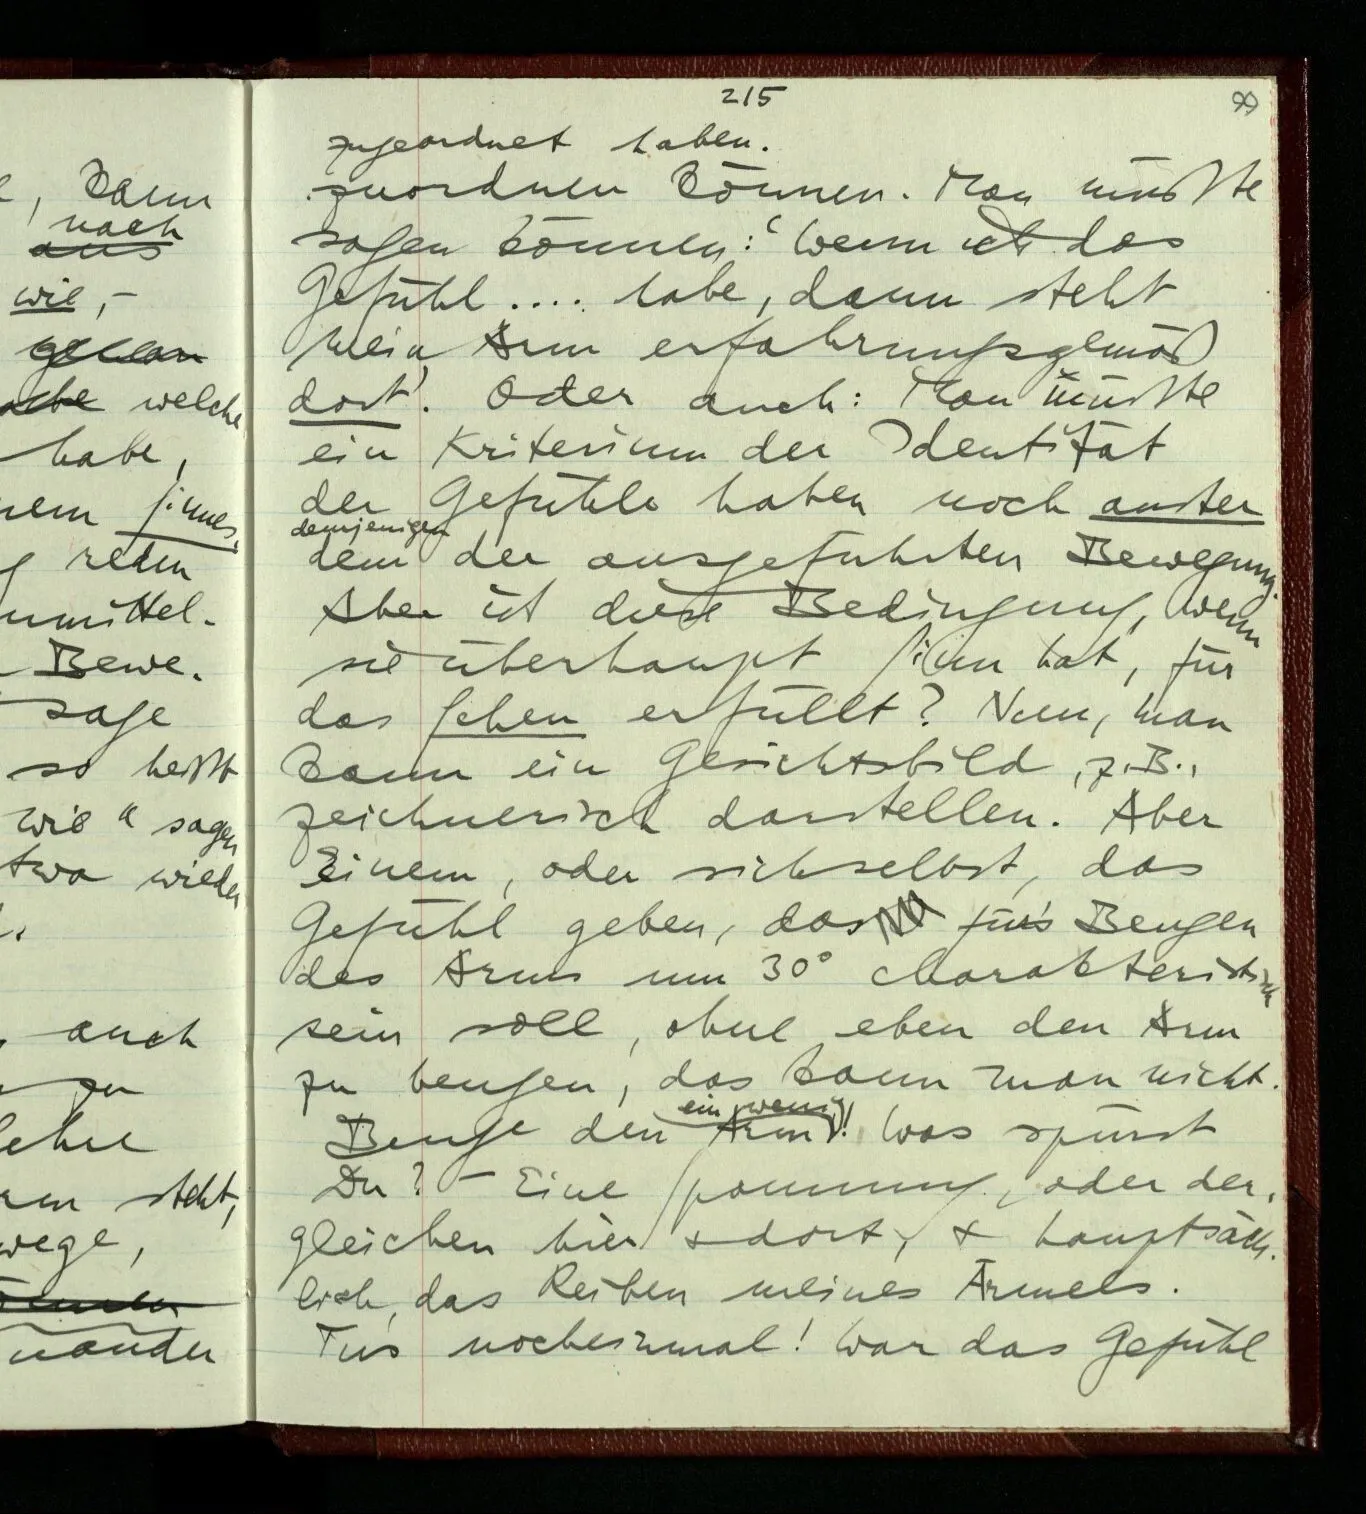 215
99
zugeordnet haben.
zuordnen können. Man müßte
sagen können: ‘Wenn ich das
Gefühl .... habe, dann steht
mein Arm erfahrungsgemäß
dort’. Oder auch: Man müßte
ein Kriterium der Identität
der Gefühle haben noch außer
demjenigen
dem der ausgeführten Bewegung.
Aber ist diese Bedingung, wenn
sie überhaupt Sinn hat, für
das Sehen erfüllt? Nun, man
kann ein Gesichtsbild, z.B.,
zeichnerisch darstellen. Aber
Einem, oder sichselbst, das
Gefühl geben, das für's Beugen
des Arms um 30° charakteristisch
sein soll, ohne eben den Arm
zu beugen, das kann man nicht.
ein wenig
Beuge den Arm! Was spürst
Du? – Eine Spannung, oder der,
gleichen hier & dort, & hauptsäch-
lich, das Reiben meines Ärmels.
Tu's nocheinmal! War das Gefühl
, kann
nach
aus
wie, –
welche
habe,
Sinnes,
reden
unmittel-
Bewe-
sage
so heißt
wie“ sagen
etwa wieder
auch
zu
steht,